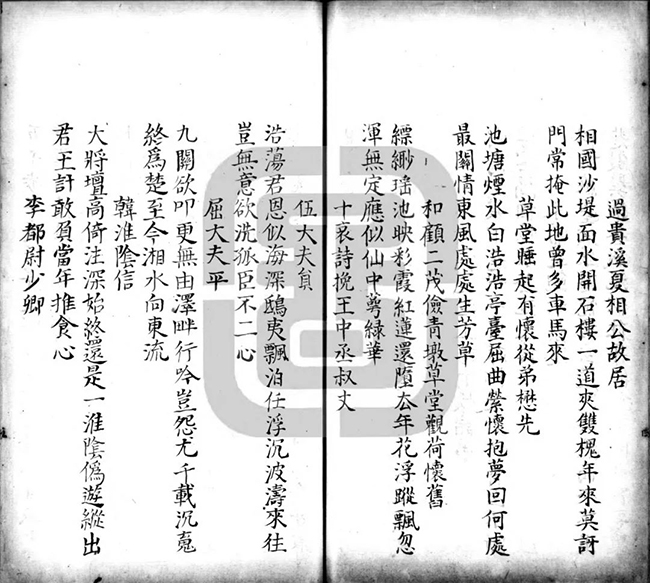 過貴溪夏相公故居
相國沙堤面水開石樓一道夾雙槐年來莫訝
門常掩此地曾多車馬來
草堂睡起有懷從弟懋先
池塘煙水白浩浩亭臺屈曲縈懷抱夢回何處
最關情東風處處生芳草
和顧二茂儉青墩草堂觀荷懷舊
縹緲瑤池映彩霞紅蓮還墮去年花浮蹤飄忽
渾無定應似仙中萼綠華
十哀詩挽王中丞叔丈
伍大夫員
浩蕩君恩似海深鴟夷飄泊任浮沉波濤來往
豈無意欲洗孤臣不二心
屈大夫平
九關欲叩更無由澤畔行吟豈怨尤千載沉冤
終爲楚至今湘水向東流
韓淮陰信
大將壇高倚注深始終還是一淮陰僞遊縱出
君王計敢負當年推食心
李都尉少卿